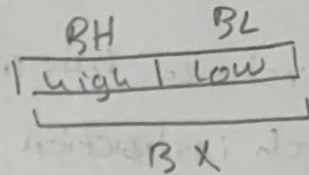 BH BL
high low
BX